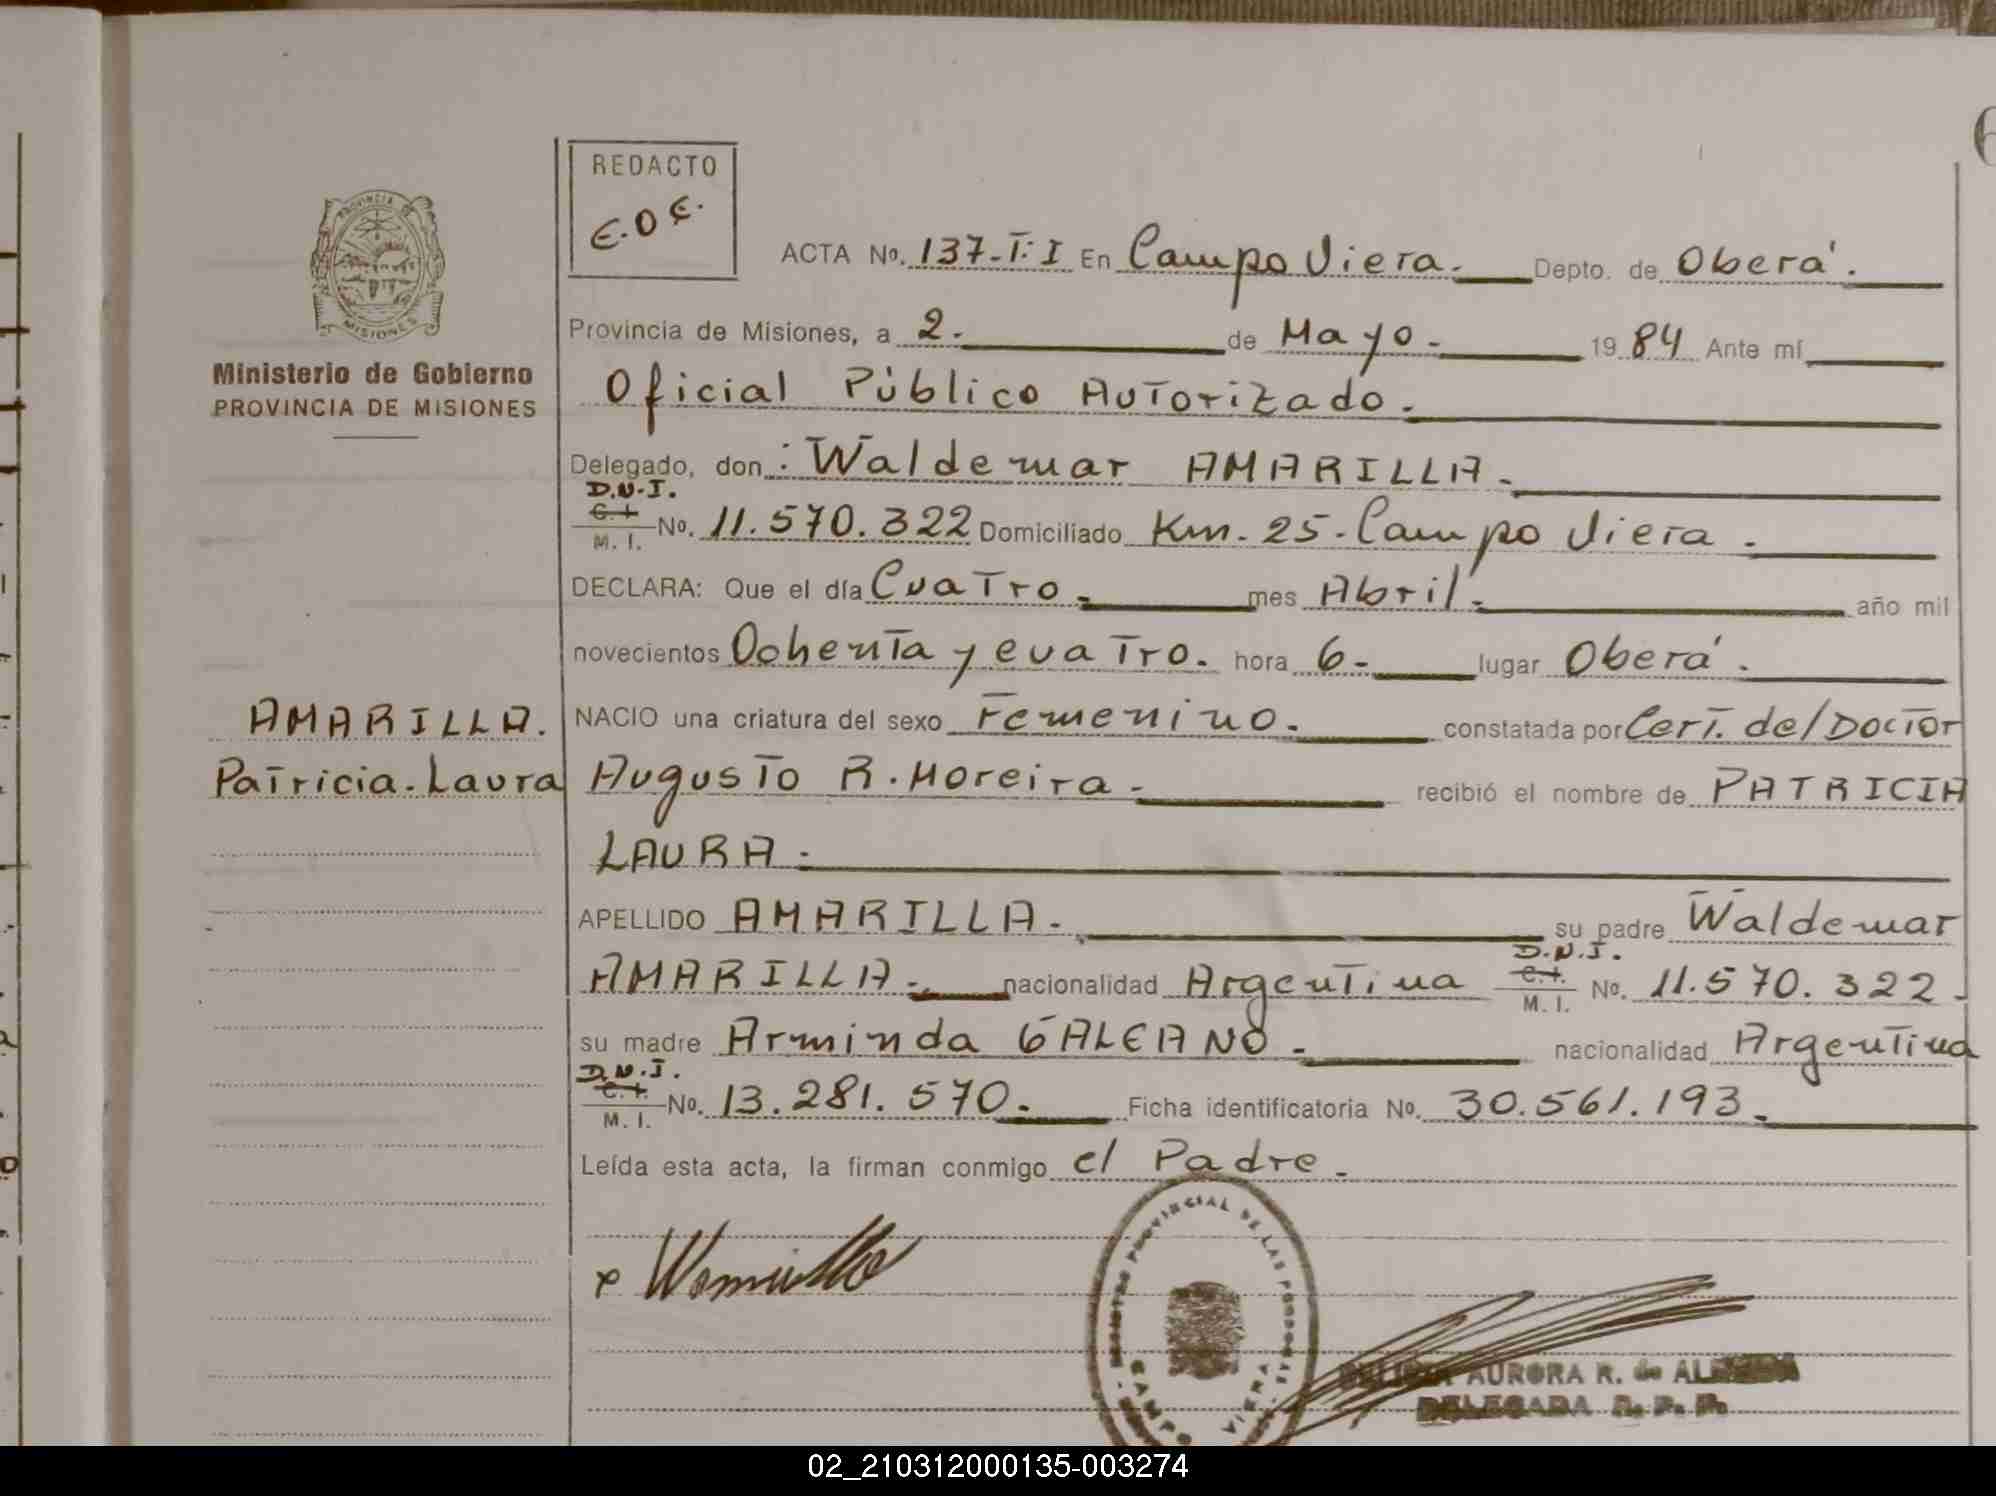 REDACTO
E.O.E.
PROVINCIA DE
MISIONES
Ministerio de Gobierno
PROVINCIA DE MISIONES
ACTA No. 137-T:I En Campo Viera. Depto. de Oberá.
Provincia de Misiones, a 2. de Mayo. 1984 Ante mí
Oficial Público Autorizado.
Delegado, don: Waldemar AMARILLA.
D.N.I.
C.I.
M. I. No. 11.570.322 Domiciliado Km. 25. Campo Viera.
DECLARA: Que el día Cuatro. mes Abril. año mil
novecientos Ochenta y cuatro. hora 6. lugar Oberá.
NACIO una criatura del sexo Femenino. constatada por Cert. del Doctor
Augusto R. Moreira. recibió el nombre de PATRICIA
LAURA.
AMARILLA.
Patricia. Laura
APELLIDO AMARILLA. su padre Waldemar
D.N.I.
AMARILLA. nacionalidad Argentina C.I. M. I. No. 11.570.322.
su madre Arminda GALEANO. nacionalidad Argentina
D.N.I.
C.I.
M. I. No. 13.281.570. Ficha identificatoria No. 30.561.193.
Leída esta acta, la firman conmigo el Padre.
REGISTRO PROVINCIAL DE LAS PERSONAS
CAMPO VIERA
AURORA R. de
DELEGADA R. P. P.
02_210312000135-003274